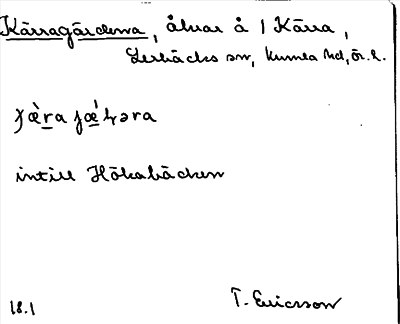 Kärragärdena, åkrar å 1 Kärra,
Lerbäcks sn, Kumla hd, Ör. l.
intill Hökabäcken
18.1 T. Ericsson